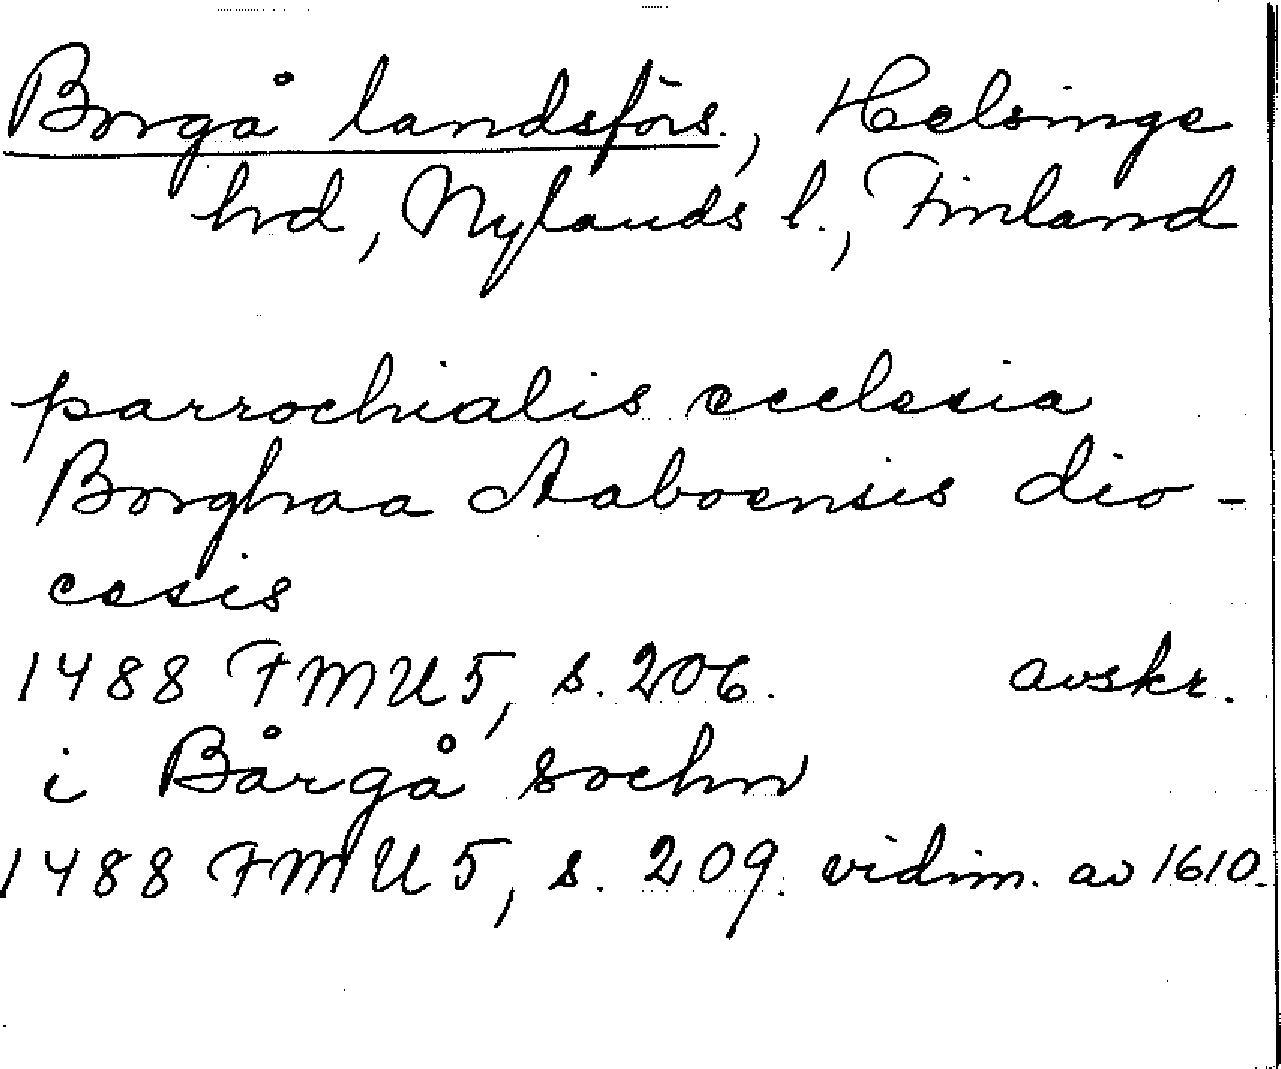 Borgå landsförs., Helsinge
hrd, Nylands l., Finland
parrochialis ecclesia
Borghaa Aaboensis dio-
cesis
1488 FMU 5, s. 206. avskr.
i Bårgå sochn
1488 FMU 5, s. 209. vidim. av 1610.